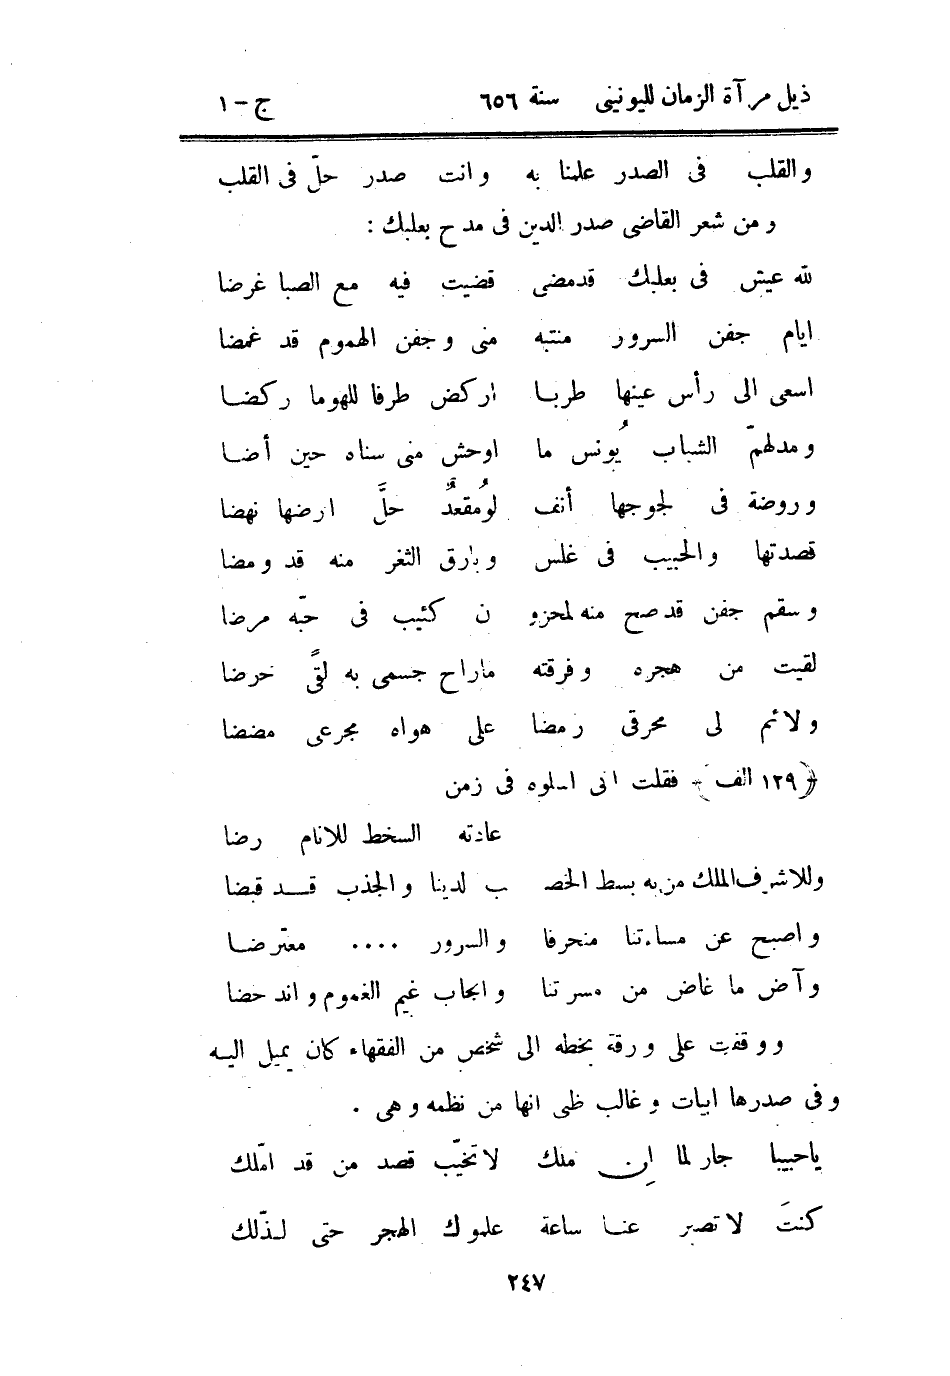 ذيل مرآة الزمان لليونينى سنة ٦٥٦ ج - ١
والقلب فى الصدر علمنا به وانت صدر حلّ فى القلب
ومن شعر القاضى صدر الدين فى مدح بعلبك :
لله عيش فى بعلبك قدمضى قضيت فيه مع الصبا غرضا
ايام جفن السرور منتبه منى وجفن الهموم قد غمضا
اسعى الى رأس عينها طربا اركض طرفا للهوما ركضا
ومدلهمّ الشباب يُونس ما اوحش منى سناه حين أضا
وروضة فى لجوجها أنف لومُقعدٌ حلَّ ارضها نهضا
قصدتها والحبيب فى غلس وبارق الثغر منه قد ومضا
وسقم جفن قدصح منه لمحزو ن كئيب فى حبّه مرضا
لقيت من هجره وفرقته ماراح جسمى به لقىً حرضا
ولائم لى محرقى رمضا على هواه مجرعى مضضا
﴿١٢٩ الف﴾ فقلت انى اسلوه فى زمن
عادته السخط للانام رضا
وللاشرف الملك مزبه بسط الخصـ ـب لدينا والجذب قد قبضا
واصبح عن مساءتنا منحرفا والسرور .... معترضا
وآض ما غاض من مسرتنا وانجاب غيم الغموم واندحضا
ووقفت على ورقة بخطه الى شخص من الفقهاء كان يميل اليه
وفى صدرها ابيات وغالب ظنى انها من نظمه وهى .
ياحبيبا جار لما ان ملك لاتخيّب قصد من قد امّلك
كنتَ لاتصبر عنا ساعة علموك الهجر حتى لذّلك
٢٤٧